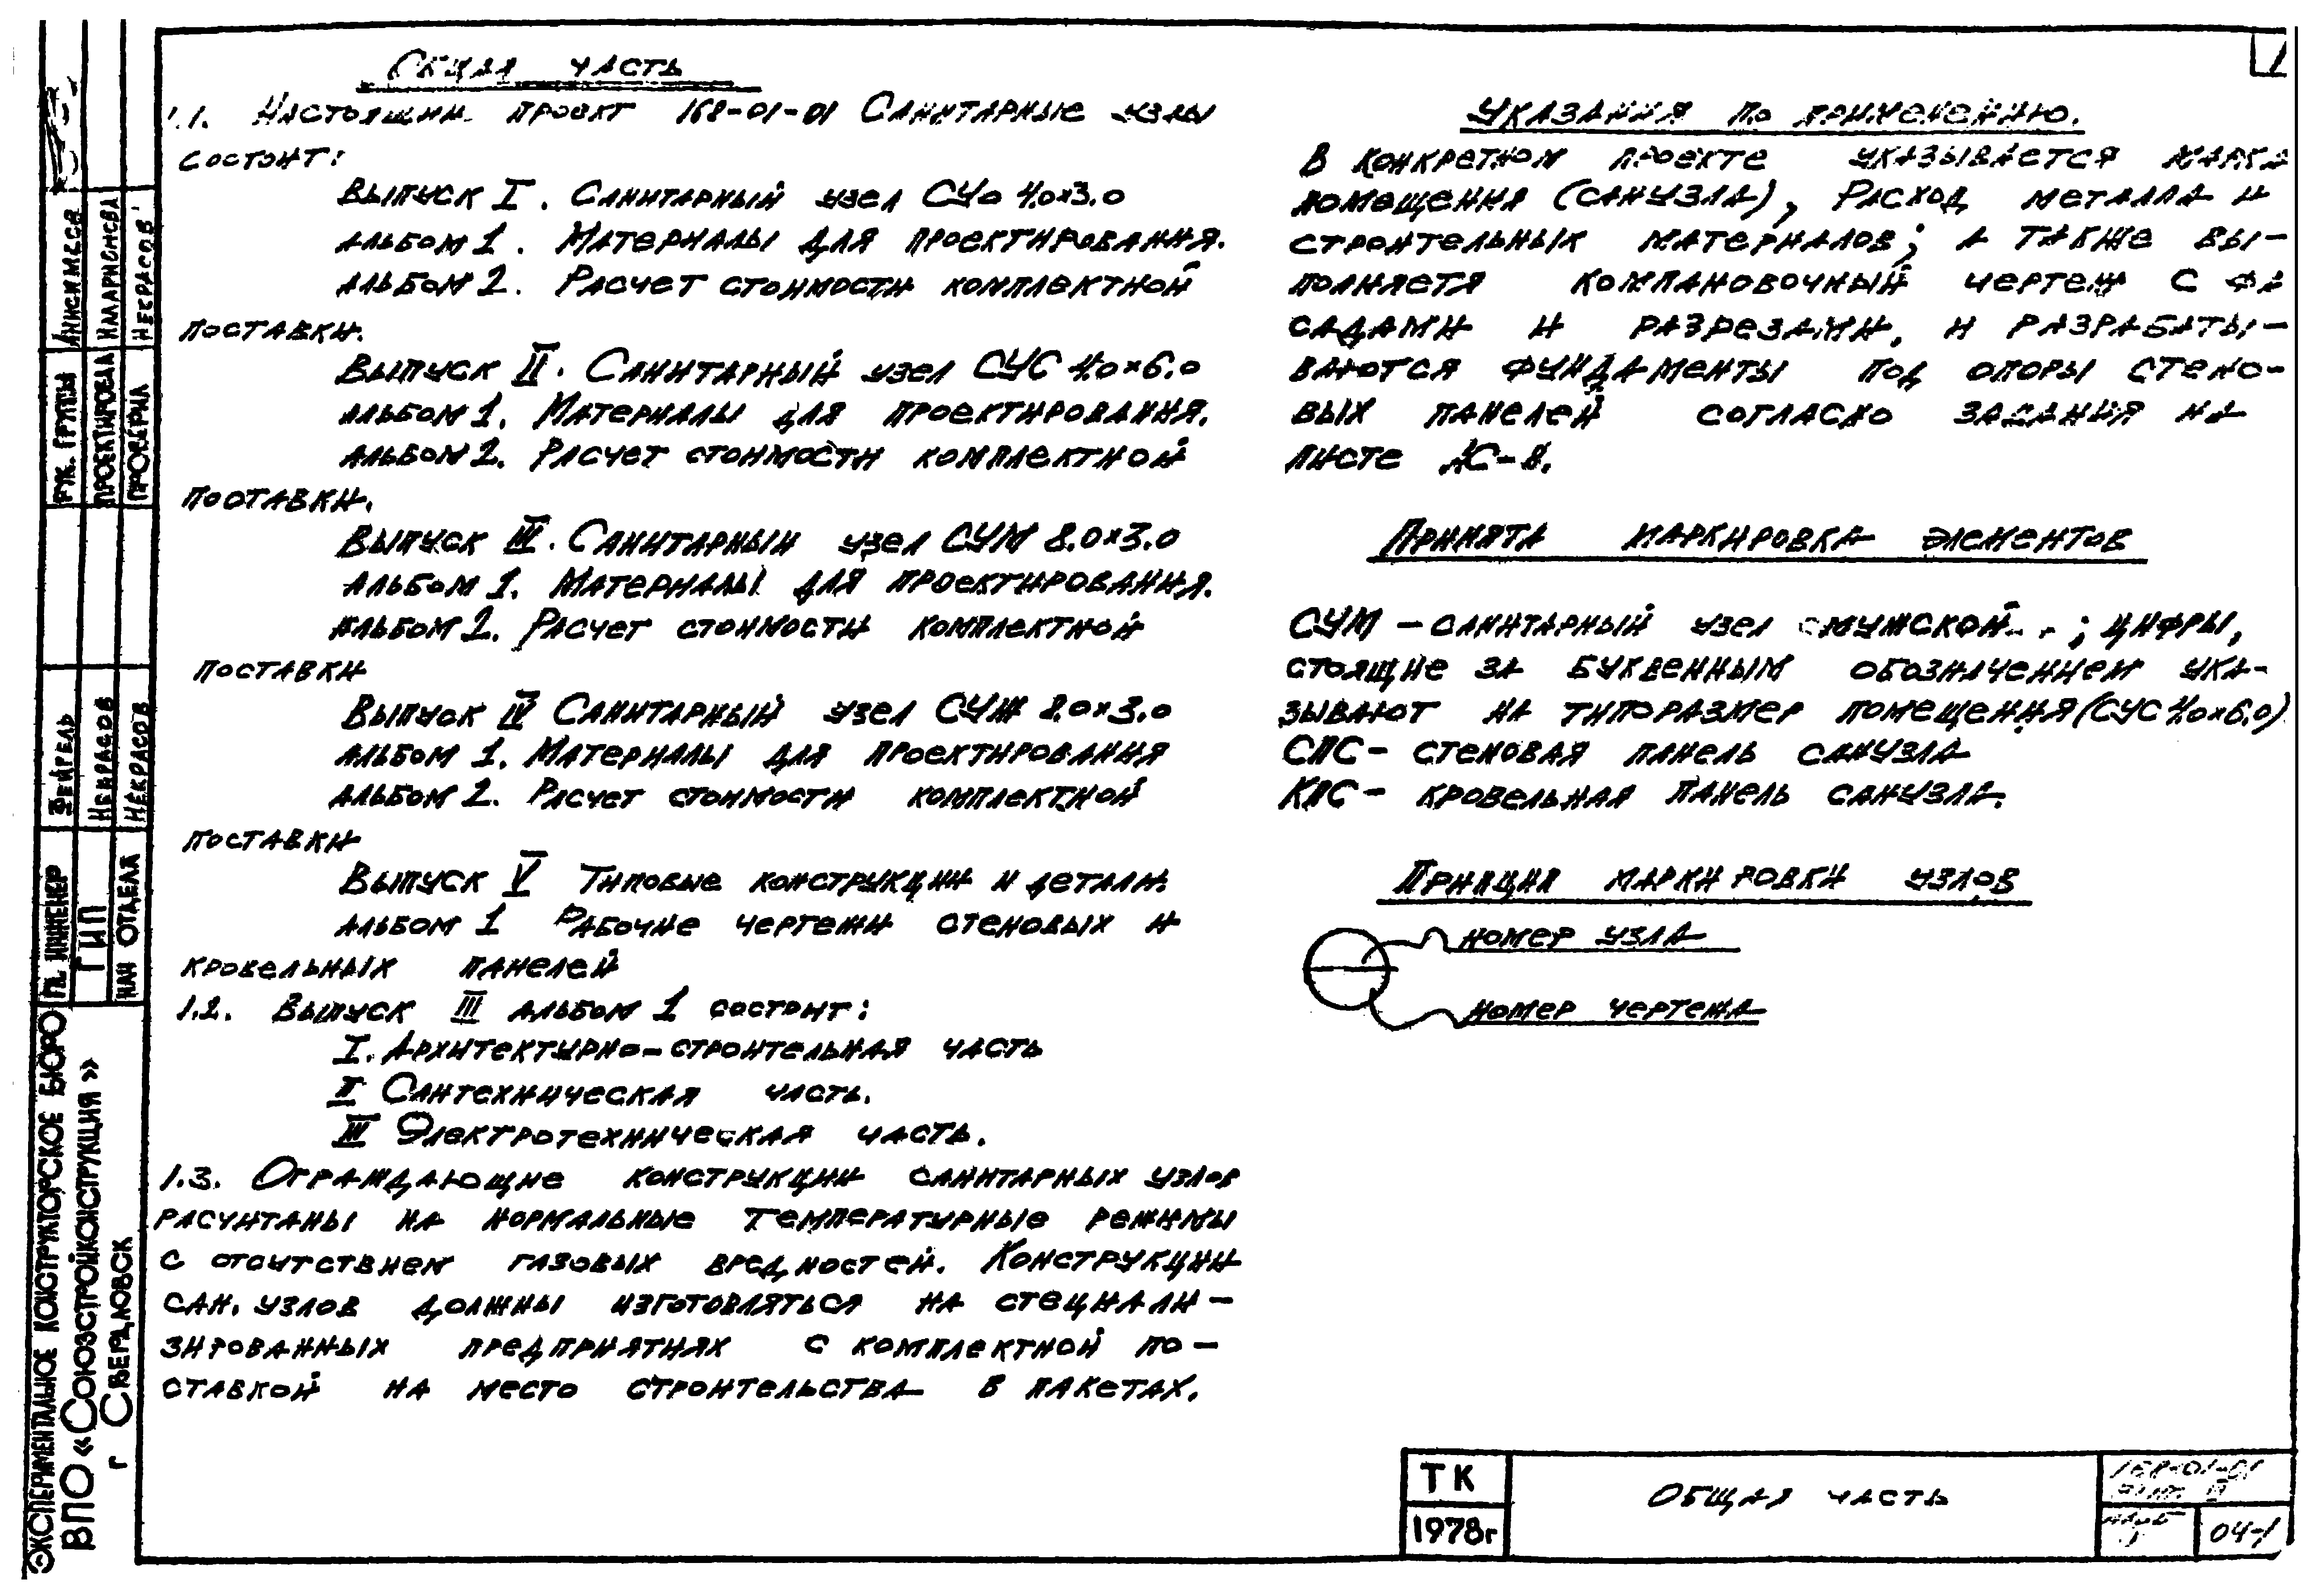 Общая часть
1.1. Настоящий проект 168-01-01 Санитарные узлы
состоит:
Выпуск I. Санитарный узел СУо 4.0×3.0
альбом 1. Материалы для проектирования.
альбом 2. Расчет стоимости комплектной
поставки.
Выпуск II. Санитарный узел СУС 4.0×6.0
альбом 1. Материалы для проектирования.
альбом 2. Расчет стоимости комплектной
поставки.
Выпуск III. Санитарный узел СУМ 8.0×3.0
альбом 1. Материалы для проектирования.
альбом 2. Расчет стоимости комплектной
поставки
Выпуск IV Санитарный узел СУЖ 8.0×3.0
альбом 1. Материалы для проектирования
альбом 2. Расчет стоимости комплектной
поставки
Выпуск V Типовые конструкции и детали.
альбом 1 Рабочие чертежи стеновых и
кровельных панелей
1.2. Выпуск III альбом 1 состоит:
I. Архитектурно-строительная часть
II Сантехническая часть.
III Электротехническая часть.
1.3. Ограждающие конструкции санитарных узлов
расчитаны на нормальные температурные режимы
с отсутствием газовых вредностей. Конструкции
сан. узлов должны изготовляться на специали-
зированных предприятиях с комплектной по-
ставкой на место строительства в пакетах.
Указания по применению.
В конкретном проекте указывается марка
помещения (санузла), расход металла и
строительных материалов; а также вы-
полняетя компановочный чертеж с фа
садами и разрезами, и разрабаты-
ваются фундаменты под опоры стено-
вых панелей согласно задания на
листе АС-8.
Принята маркировка элементов
СУМ - санитарный узел мужской; цифры,
стоящие за буквенным обозначением ука-
зывают на типоразмер помещения (СУС 4.0×6.0)
СПС - стеновая панель санузла
КПС - кровельная панель санузла.
Принцип маркировки узлов
номер узла
номер чертежа
ТК
1978г
Общая часть
168-01-01
04-1
Экспериментальное конструкторское бюро
ВПО «Союзстройконструкция»
г Свердловск
Гл. инженер Фейгель
ГИП Некрасов
Нач отдела Некрасов
Рук. группы Анисимова
Проектировал Илларионова
Проверил Некрасов